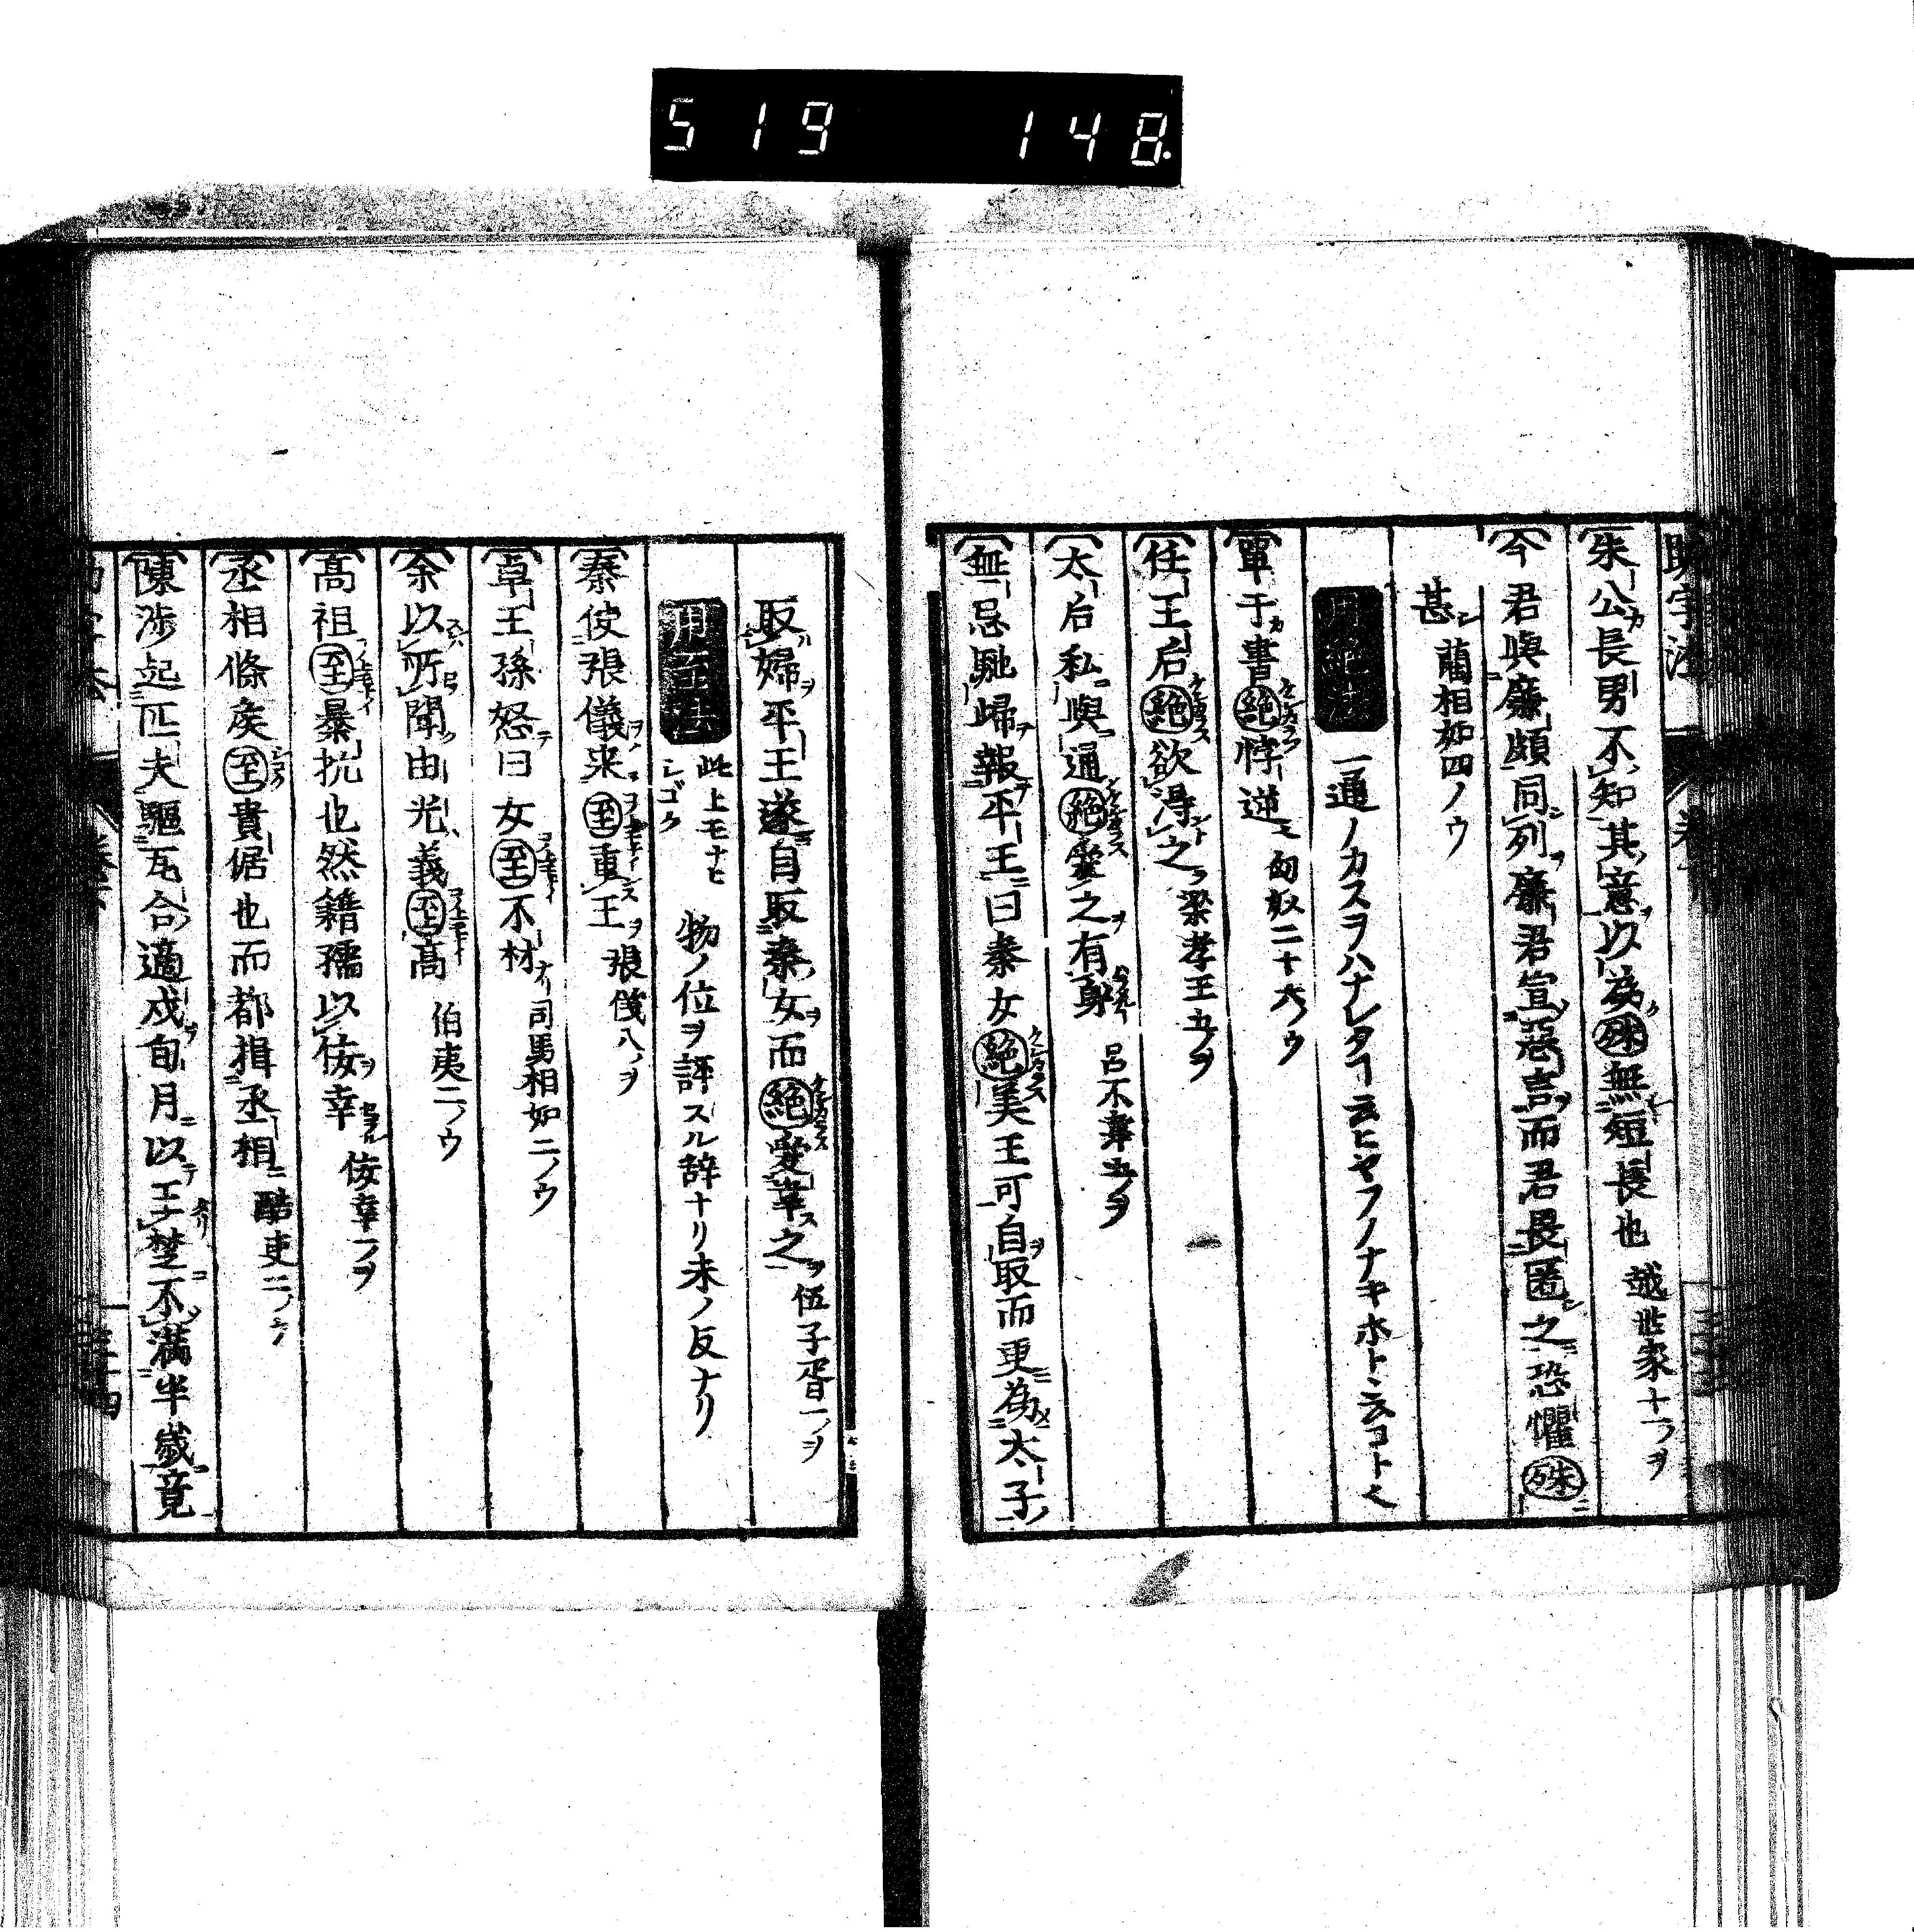 519 148.
助字法
朱公長男不知其意以為殊無短長也 越世家十一ノヲ
今君與廉頗同列廉君宣惡言而君畏匿之恐懼殊
甚 藺相如四ノウ
用絶法 一通ノカスヲハナレタ 云ヒヤフノナキホトニ云コト也
單于書絶悖逆 匈奴二十六ノウ
任王后絶欲得之 梁孝王五ノヲ
太后私與通絶愛之有身 呂不韋五ノヲ
無忌馳歸報平王曰秦女絶美王可自取而更為太子
取婦平王遂自取秦女而絶愛幸之 伍子胥一ノヲ
用至法 此上モナヒ シゴク 物ノ位ヲ評スル辞ナリ未ノ反ナリ
秦使張儀来至重王 張儀八ノヲ
卓王孫怒曰女至不材 司馬相如二ノウ
余以所聞由光義至高 伯夷二ノウ
高祖至暴抗也然籍孺以佞幸 佞幸一ノヲ
丞相條矦至貴倨也而都揖丞相 酷吏二ノウ
陳涉起匹夫驅瓦合適戍旬月以王楚不満半歲竟